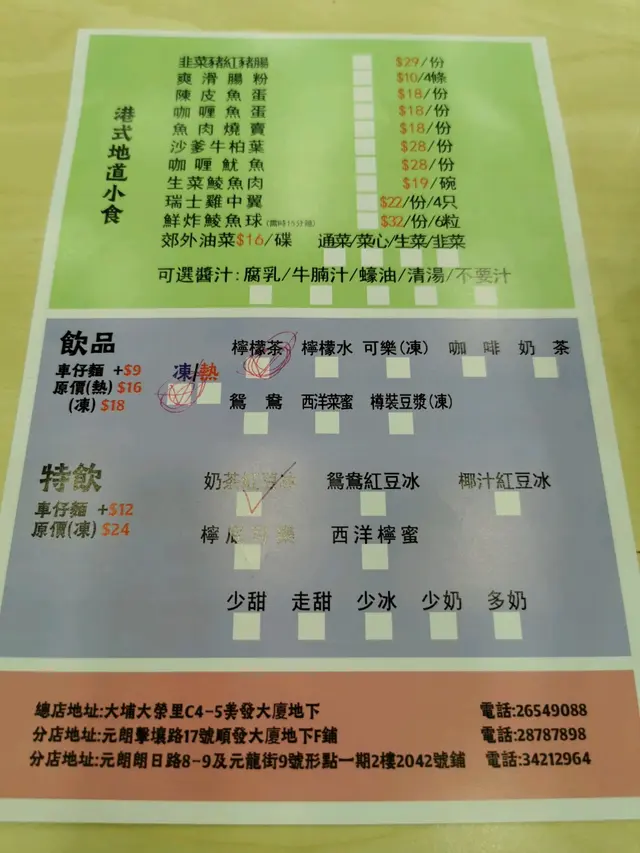 港式地道小食
韭菜豬紅豬腸 $29/份
爽滑腸粉 $10/4條
陳皮魚蛋 $18/份
咖喱魚蛋 $18/份
魚肉燒賣 $18/份
沙爹牛柏葉 $28/份
咖喱魷魚 $28/份
生菜鯪魚肉 $19/碗
瑞士雞中翼 $22/份/4只
鮮炸鯪魚球(需時15分鐘) $32/份/6粒
郊外油菜$16/碟 通菜/菜心/生菜/韭菜
可選醬汁:腐乳/牛腩汁/蠔油/清湯/不要汁
飲品
車仔麵 +$9
原價(熱) $16
(凍) $18
凍/熱
檸檬茶 檸檬水 可樂(凍) 咖啡 奶茶
鴛鴦 西洋菜蜜 樽裝豆漿(凍)
特飲
車仔麵 +$12
原價(凍) $24
奶茶紅豆冰 鴛鴦紅豆冰 椰汁紅豆冰
檸 西洋檸蜜
少甜 走甜 少冰 少奶 多奶
總店地址:大埔大榮里C4-5美發大廈地下 電話:26549088
分店地址:元朗擊壤路17號順發大廈地下F鋪 電話:28787898
分店地址:元朗朗日路8-9及元龍街9號形點一期2樓2042號鋪 電話:34212964